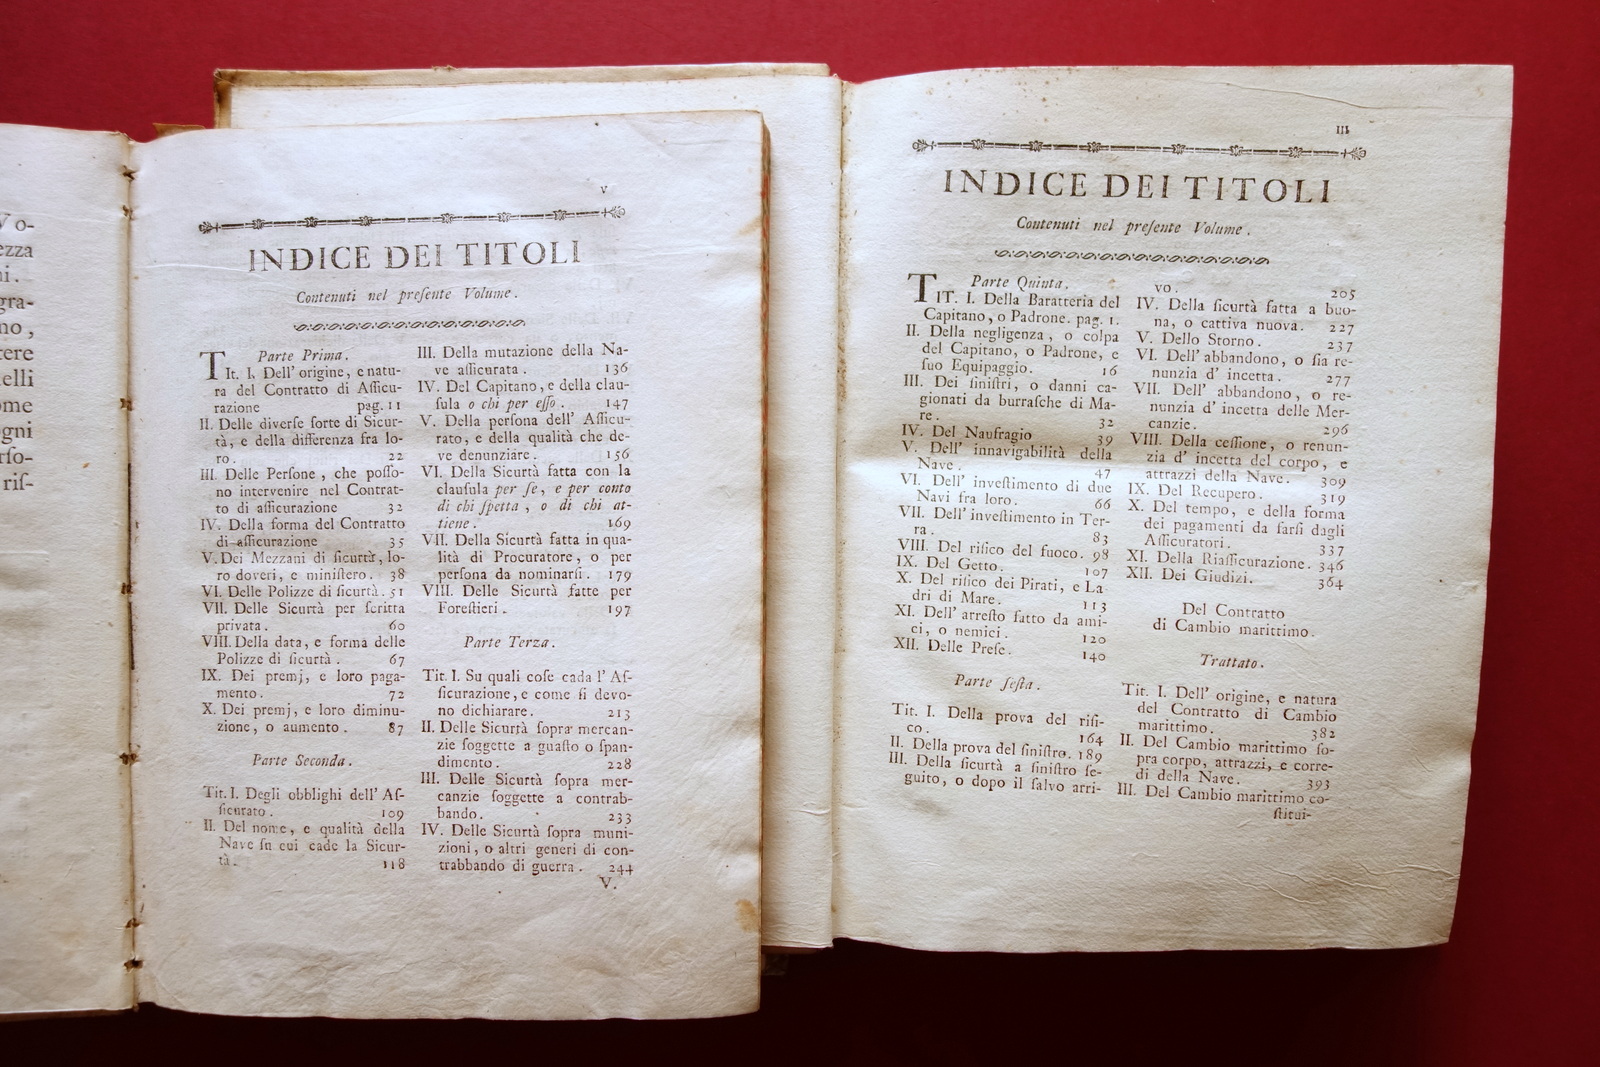 Vo-
ezza
ni.
gra-
no,
tere
elli
ome
ogni
rſo-
riſ-
V
INDICE DEI TITOLI
Contenuti nel preſente Volume.
Parte Prima.
TIt. I. Dell' origine, e natu-
ra del Contratto di Aſſicu-
razione pag. 11
II. Delle diverſe ſorte di Sicur-
tà, e della differenza fra lo-
ro. 22
III. Delle Perſone, che poſſo-
no intervenire nel Contrat-
to di aſſicurazione 32
IV. Della forma del Contratto
di aſſicurazione 35
V. Dei Mezzani di ſicurtà, lo-
ro doveri, e miniſtero. 38
VI. Delle Polizze di ſicurtà. 51
VII. Delle Sicurtà per ſcritta
privata. 60
VIII. Della data, e forma delle
Polizze di ſicurtà. 67
IX. Dei premj, e loro paga-
mento. 72
X. Dei premj, e loro diminu-
zione, o aumento. 87
Parte Seconda.
Tit. I. Degli obblighi dell' Aſ-
ſicurato. 109
II. Del nome, e qualità della
Nave ſu cui cade la Sicur-
tà. 118
III. Della mutazione della Na-
ve aſſicurata. 136
IV. Del Capitano, e della clau-
ſula o chi per eſſo. 147
V. Della perſona dell' Aſſicu-
rato, e della qualità che de-
ve denunziare. 156
VI. Della Sicurtà fatta con la
clauſula per ſe, e per conto
di chi ſpetta, o di chi at-
tiene. 169
VII. Della Sicurtà fatta in qua-
lità di Procuratore, o per
perſona da nominarſi. 179
VIII. Delle Sicurtà fatte per
Foreſtieri. 197
Parte Terza.
Tit. I. Su quali coſe cada l' Aſ-
ſicurazione, e come ſi devo-
no dichiarare. 213
II. Delle Sicurtà ſopra mercan-
zie ſoggette a guaſto o ſpan-
dimento. 228
III. Delle Sicurtà ſopra mer-
canzie ſoggette a contrab-
bando. 233
IV. Delle Sicurtà ſopra muni-
zioni, o altri generi di con-
trabbando di guerra. 244
V.
III
INDICE DEI TITOLI
Contenuti nel preſente Volume.
Parte Quinta.
TIT. I. Della Baratteria del
Capitano, o Padrone. pag. 1.
II. Della negligenza, o colpa
del Capitano, o Padrone, e
ſuo Equipaggio. 16
III. Dei ſiniſtri, o danni ca-
gionati da burraſche di Ma-
re. 32
IV. Del Naufragio 39
V. Dell' innavigabilità della
Nave. 47
VI. Dell' inveſtimento di due
Navi fra loro. 66
VII. Dell' inveſtimento in Ter-
ra. 83
VIII. Del riſico del fuoco. 98
IX. Del Getto. 107
X. Del riſico dei Pirati, e La-
dri di Mare. 113
XI. Dell' arreſto fatto da ami-
ci, o nemici. 120
XII. Delle Preſe. 140
Parte ſeſta.
Tit. I. Della prova del riſi-
co. 164
II. Della prova del ſiniſtro. 189
III. Della ſicurtà a ſiniſtro ſe-
guito, o dopo il ſalvo arri-
vo. 205
IV. Della ſicurtà fatta a buo-
na, o cattiva nuova. 227
V. Dello Storno. 237
VI. Dell' abbandono, o ſia re-
nunzia d' incetta. 277
VII. Dell' abbandono, o re-
nunzia d' incetta delle Mer-
canzie. 296
VIII. Della ceſſione, o renun-
zia d' incetta del corpo, e
attrazzi della Nave. 309
IX. Del Recupero. 319
X. Del tempo, e della forma
dei pagamenti da farſi dagli
Aſſicuratori. 337
XI. Della Riaſſicurazione. 346
XII. Dei Giudizi. 364
Del Contratto
di Cambio marittimo.
Trattato.
Tit. I. Dell' origine, e natura
del Contratto di Cambio
marittimo. 382
II. Del Cambio marittimo ſo-
pra corpo, attrazzi, e corre-
di della Nave. 393
III. Del Cambio marittimo co-
ſtitui-